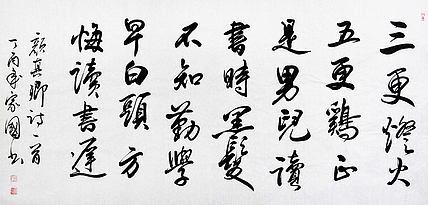 三更燈火
五更鷄正
是男兒讀
書時黑髮
不知勤學
早白頭方
悔讀書遲
顏真卿詩一首
丁酉年家國書